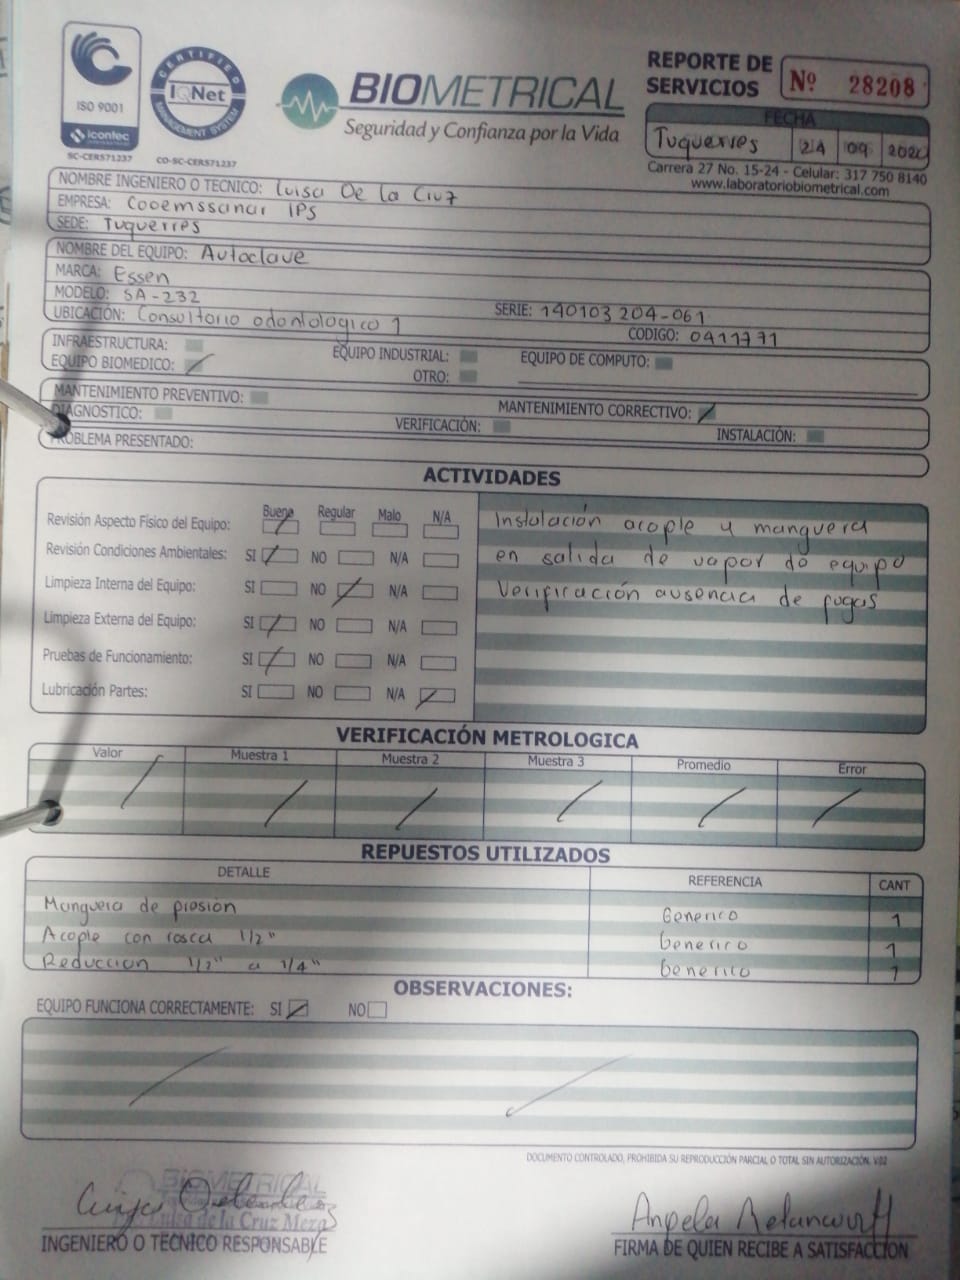 ISO 9001
icontec
SC-CER571237
CERTIFIED
IQNet
MANAGEMENT SYSTEM
CO-SC-CER571237
BIOMETRICAL
Seguridad y Confianza por la Vida
REPORTE DE SERVICIOS Nº 28208
FECHA
Tuquerres 24 09 2020
Carrera 27 No. 15-24 - Celular: 317 750 8140
www.laboratoriobiometrical.com
NOMBRE INGENIERO O TECNICO: Luisa De la Cruz
EMPRESA: Cooemssanar IPS
SEDE: Tuquerres
NOMBRE DEL EQUIPO: Autoclave
MARCA: Essen
MODELO: SA-232 SERIE: 140103204-061
UBICACIÓN: Consultorio odontologico 1 CODIGO: 0411771
INFRAESTRUCTURA: EQUIPO INDUSTRIAL: EQUIPO DE COMPUTO:
EQUIPO BIOMEDICO: OTRO:
MANTENIMIENTO PREVENTIVO: MANTENIMIENTO CORRECTIVO:
DIAGNOSTICO: VERIFICACIÓN: INSTALACIÓN:
PROBLEMA PRESENTADO:
ACTIVIDADES
Bueno Regular Malo N/A
Revisión Aspecto Físico del Equipo:
Revisión Condiciones Ambientales: SI NO N/A
Limpieza Interna del Equipo: SI NO N/A
Limpieza Externa del Equipo: SI NO N/A
Pruebas de Funcionamiento: SI NO N/A
Lubricación Partes: SI NO N/A
Instalación acople y manguera
en salida de vapor de equipo
Verificación ausencia de fugas
VERIFICACIÓN METROLOGICA
Valor Muestra 1 Muestra 2 Muestra 3 Promedio Error
REPUESTOS UTILIZADOS
DETALLE REFERENCIA CANT
Manguera de presión Generico 1
Acople con rosca 1/2" Generico 1
Reduccion 1/2" a 1/4" Generico 1
OBSERVACIONES:
EQUIPO FUNCIONA CORRECTAMENTE: SI NO
DOCUMENTO CONTROLADO, PROHIBIDA SU REPRODUCCIÓN PARCIAL O TOTAL SIN AUTORIZACIÓN. V.02
BIOMETRICAL
Luisa de la Cruz Meza
INGENIERO O TECNICO RESPONSABLE
Angela Betancourth
FIRMA DE QUIEN RECIBE A SATISFACCION